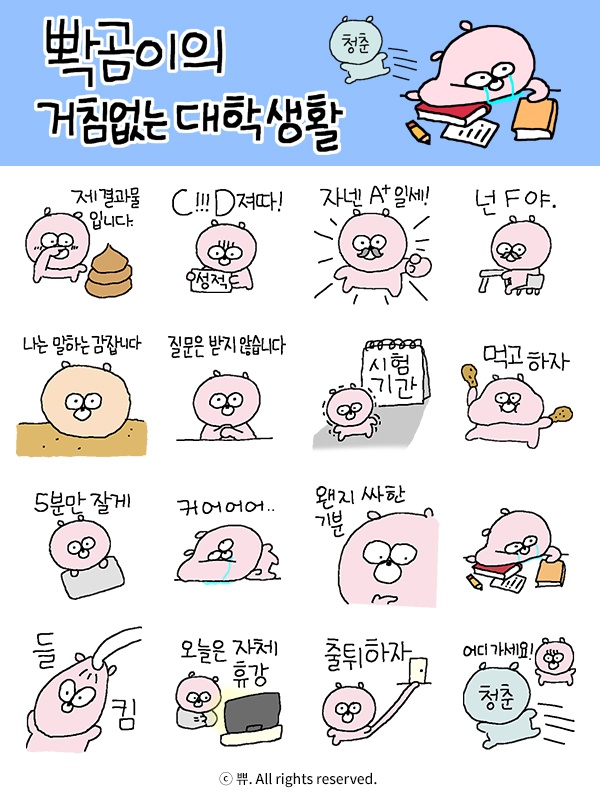 빡곰이의
청춘
거침없는 대학생활
제 결과물
입니다.
C!!! D져따!
성적
자넨 A+일세!
넌 F야.
나는 말하는 감잡니다
질문은 받지 않습니다
시험
기간
먹고 하자
5분만 잘게
커어어어..
왠지 싸한
기분
들
킴
오늘은 자체
휴강
출튀하자
어디가세요!
청춘
ⓒ 쀼. All rights reserved.